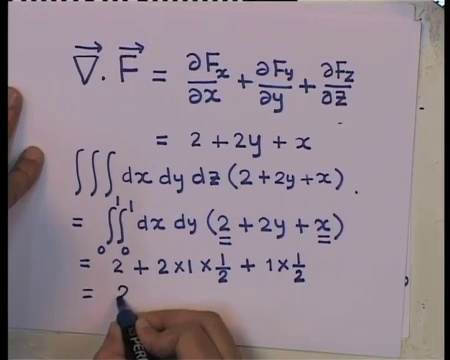 ∇⃗ . F⃗ = ∂Fx/∂x + ∂Fy/∂y + ∂Fz/∂z
= 2 + 2y + x
∫∫∫ dx dy dz (2 + 2y + x) .
= ∫₀¹∫₀¹ dx dy (2 + 2y + x)
= 2 + 2 × 1 × 1/2 + 1 × 1/2
= 2